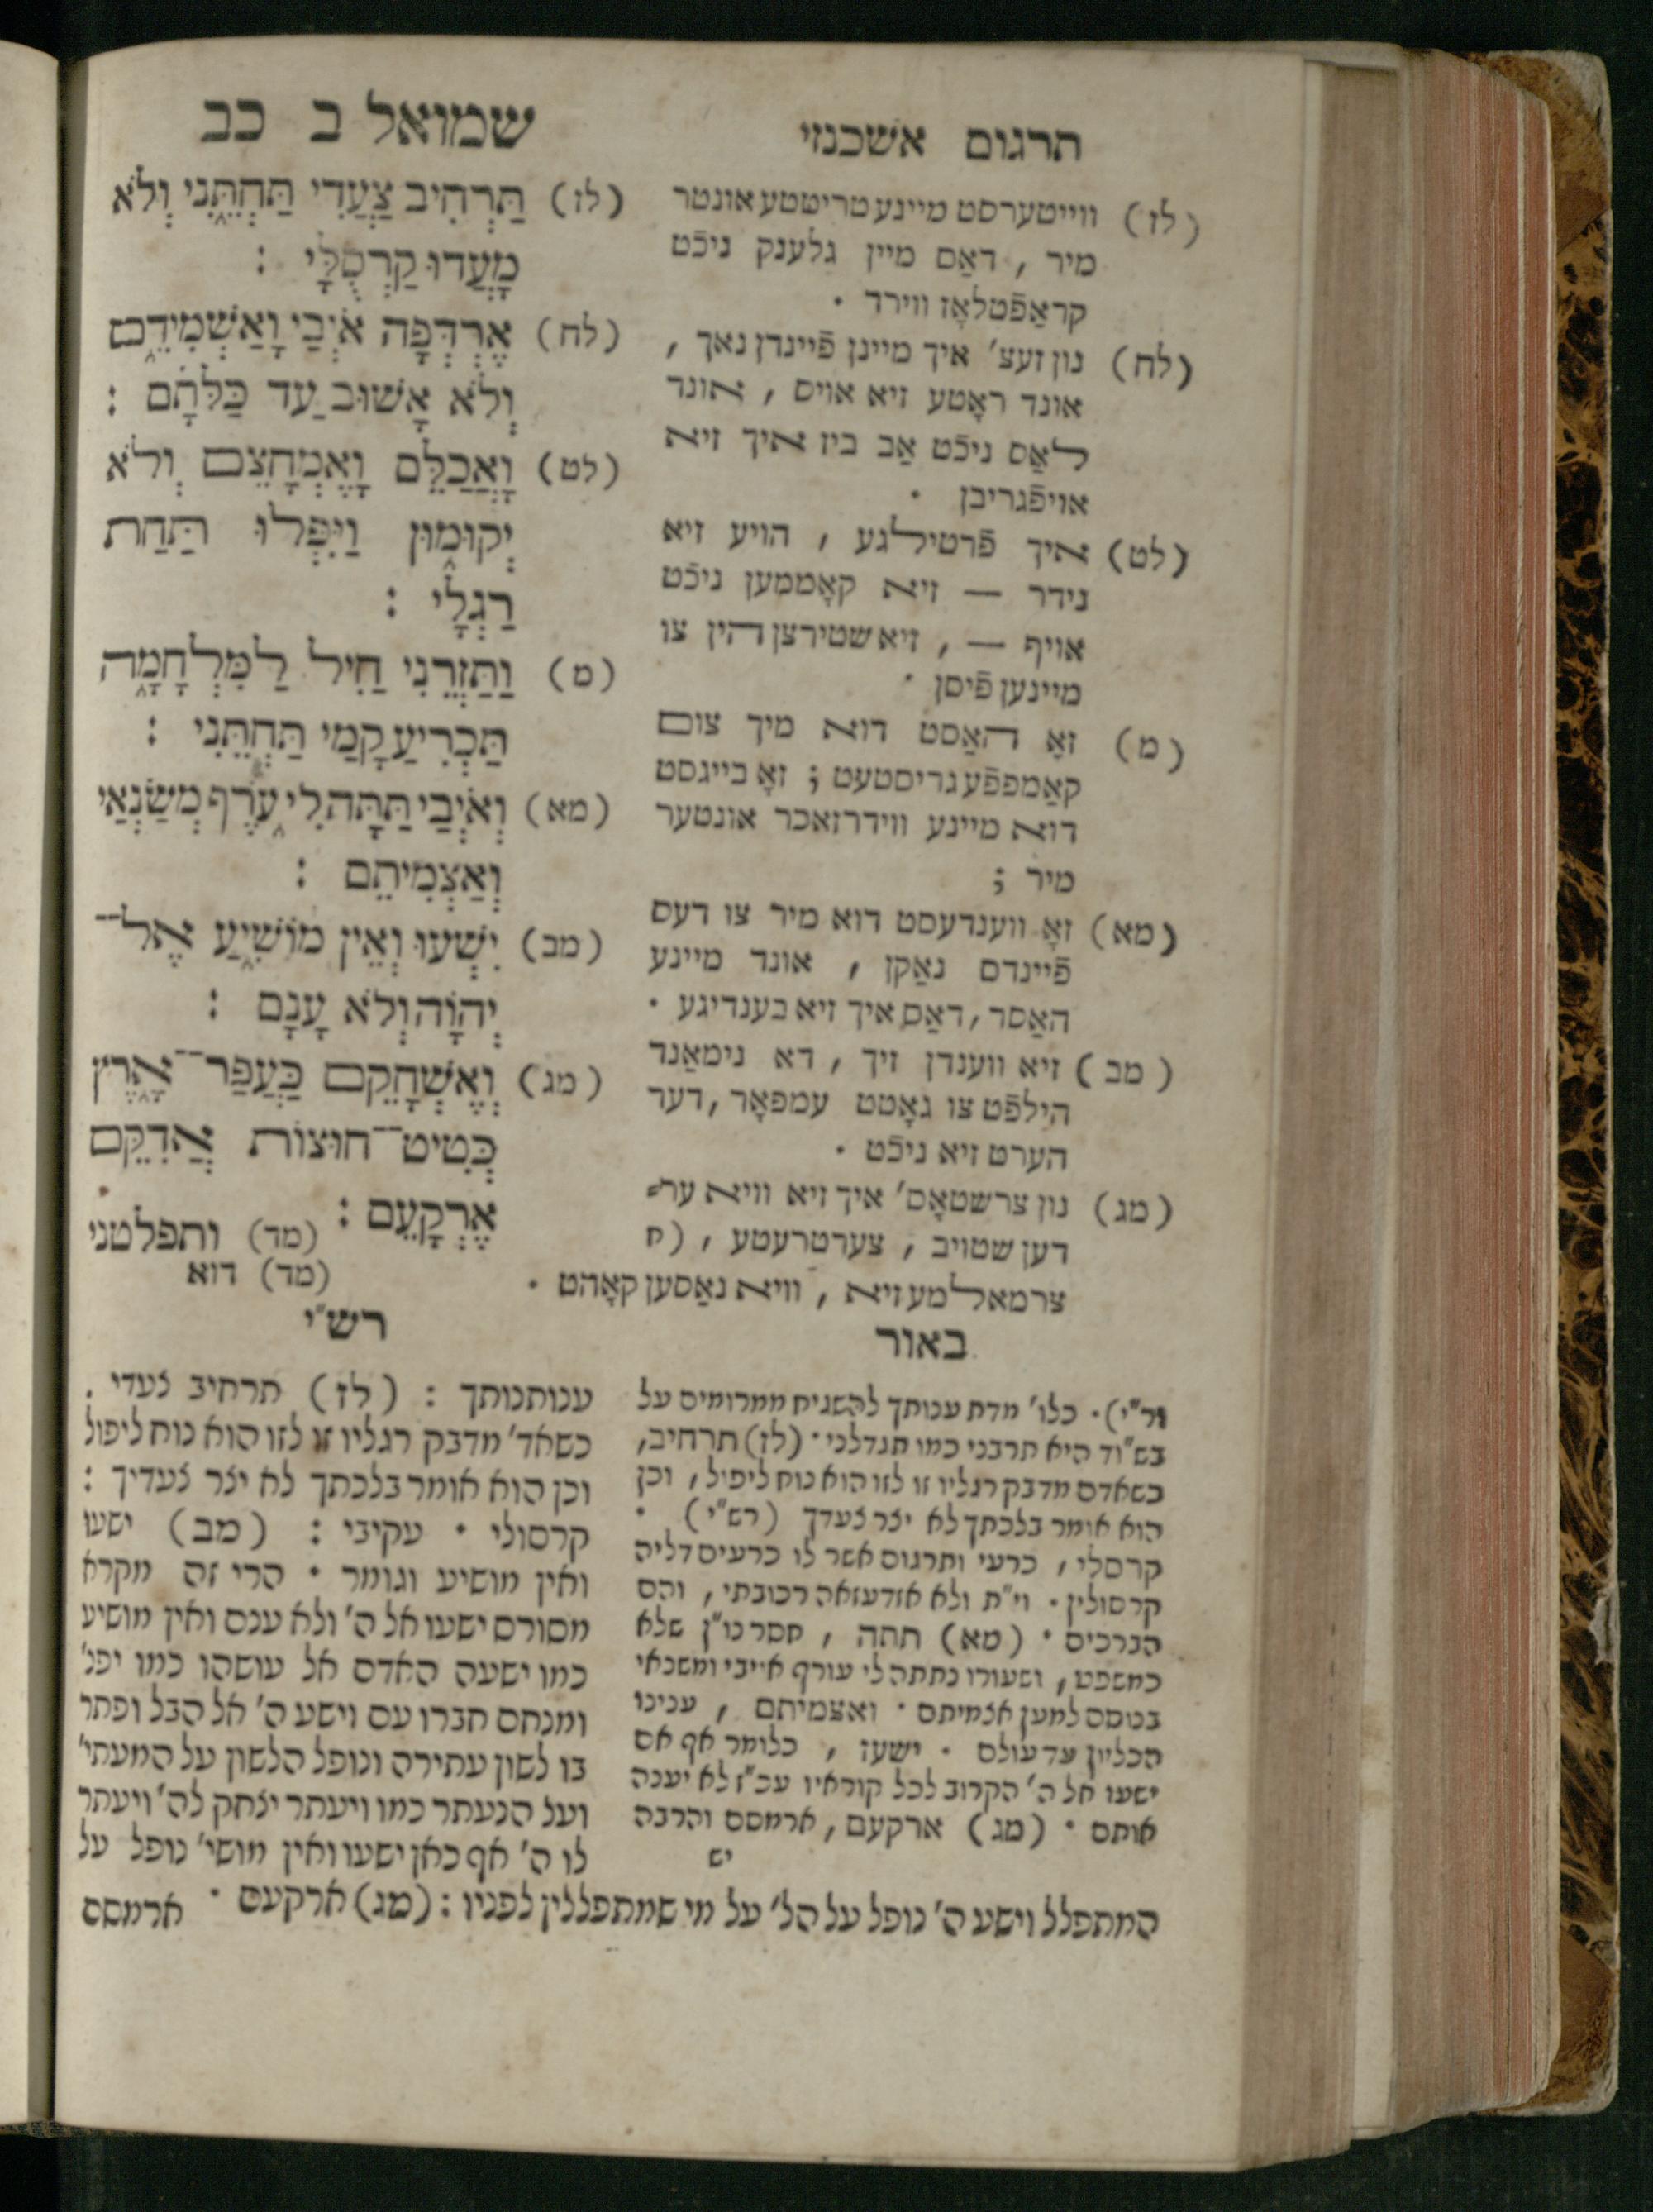 תרגום אשכנזי
(לז) ווייטערסט מיינע טריטטע אונטר
מיר , דאַס מיין גלענק ניכֿט
קראַפֿטלאָז ווירד .
(לח) נון זעצ' איך מיינן פֿיינדן נאך ,
אונד ראָטע זיא אויס , אונד
לאַס ניכֿט אַב ביז איך זיא
אויפֿגריבן .
(לט) איך פֿרטיללגע , הויע זיא
נידר — זיא קאָממען ניכֿט
אויף — , זיא שטירצן הין צו
מיינען פֿיסן .
(מ) זאָ האַסט דוא מיך צום
קאַמפפֿע גריסטעט ; זאָ בייגסט
דוא מיינע ווידרזאכר אונטער
מיר ;
(מא) זאָ ווענדעסט דוא מיר צו דעס
פֿיינדס נאַקן , אונד מיינע
האַסר , דאַס איך זיא בענדיגע .
(מב) זיא ווענדן זיך , דא נימאַנד
הילפֿט צו גאָטט עמפאָר , דער
הערט זיא ניכֿט .
(מג) נון צרשטאָס' איך זיא וויא ער⸗
דען שטויב , צערטרעטע , (ח
צרמאלמע זיא , וויא גאַסען קאָהט .
שמואל ב כב
(לז) תַּרְחִיב צַעֲדִי תַּחְתֵּנִי וְלֹא
מָעֲדוּ קַרְסֻלָּי :
(לח) אֶרְדְּפָה אֹיְבַי וָאַשְׁמִידֵם
וְלֹא אָשׁוּב עַד כַּלֹּתָם :
(לט) וָאֲכַלֵּם וָאֶמְחָצֵם וְלֹא
יְקוּמוּן וַיִּפְּלוּ תַּחַת
רַגְלָי :
(מ) וַתַּזְרֵנִי חַיִל לַמִּלְחָמָה
תַּכְרִיעַ קָמַי תַּחְתֵּנִי :
(מא) וְאֹיְבַי תַּתָּה לִּי עֹרֶף מְשַׂנְאַי
וָאַצְמִיתֵם :
(מב) יִשְׁעוּ וְאֵין מוֹשִׁיעַ אֶל־
יְהוָה וְלֹא עָנָם :
(מג) וְאֶשְׁחָקֵם כַּעֲפַר־אָרֶץ
כְּטִיט־חוּצוֹת אֲדִקֵּם
אֶרְקָעֵם :
(מד) ותפלטני
(מד) דוא
באור
ור"י) . כלו' מדת ענותך להשגיח ממרומים על
בש"וד היא תרבני כמו תגדלני . (לז) תרחיב ,
כשאדם מדבק רגליו זו לזו הוא נוח ליפול , וכן
הוא אומר בלכתך לא יצר צעדך (רש"י) .
קרסלי , כרעי ותרגום אשר לו כרעים דליה
קרסולין . וי"ת ולא אזדעזאה רכובתי , והם
הברכים . (מא) תתה , חסר נו"ן שלא
כמשפט , ושעורו נתתה לי עורף אויבי ומשנאי
בנוסם למען אצמיתם . ואצמיתם , ענינו
הכליון עד עולם . ישעו , כלומר אף אם
ישעו אל ה' הקרוב לכל קוראיו עכ"ז לא יענה
אותם . (מג) ארקעם , ארמסם והרבה
יש
רש"י
ענותנותך : (לז) תרחיב צעדי .
כשאד' מדבק רגליו זו לזו הוא נוח ליפול
וכן הוא אומר בלכתך לא יצר צעדיך :
קרסולי . עקיבי : (מב) ישעו
ואין מושיע וגומר . הרי זה מקרא
מסורס ישעו אל ה' ולא ענם ואין מושיע
כמו ישעה האדם אל עושהו כמו יפנ'
ומנחם חברו עם וישע ה' אל הבל ופתר
בו לשון עתירה ונופל הלשון על המעתי'
ועל הנעתר כמו ויעתר יצחק לה' ויעתר
לו ה' אף כאן ישעו ואין מושי' נופל על
המתפלל וישע ה' נופל על הל' על מי שמתפללין לפניו : (מג) ארקעם . ארמסם